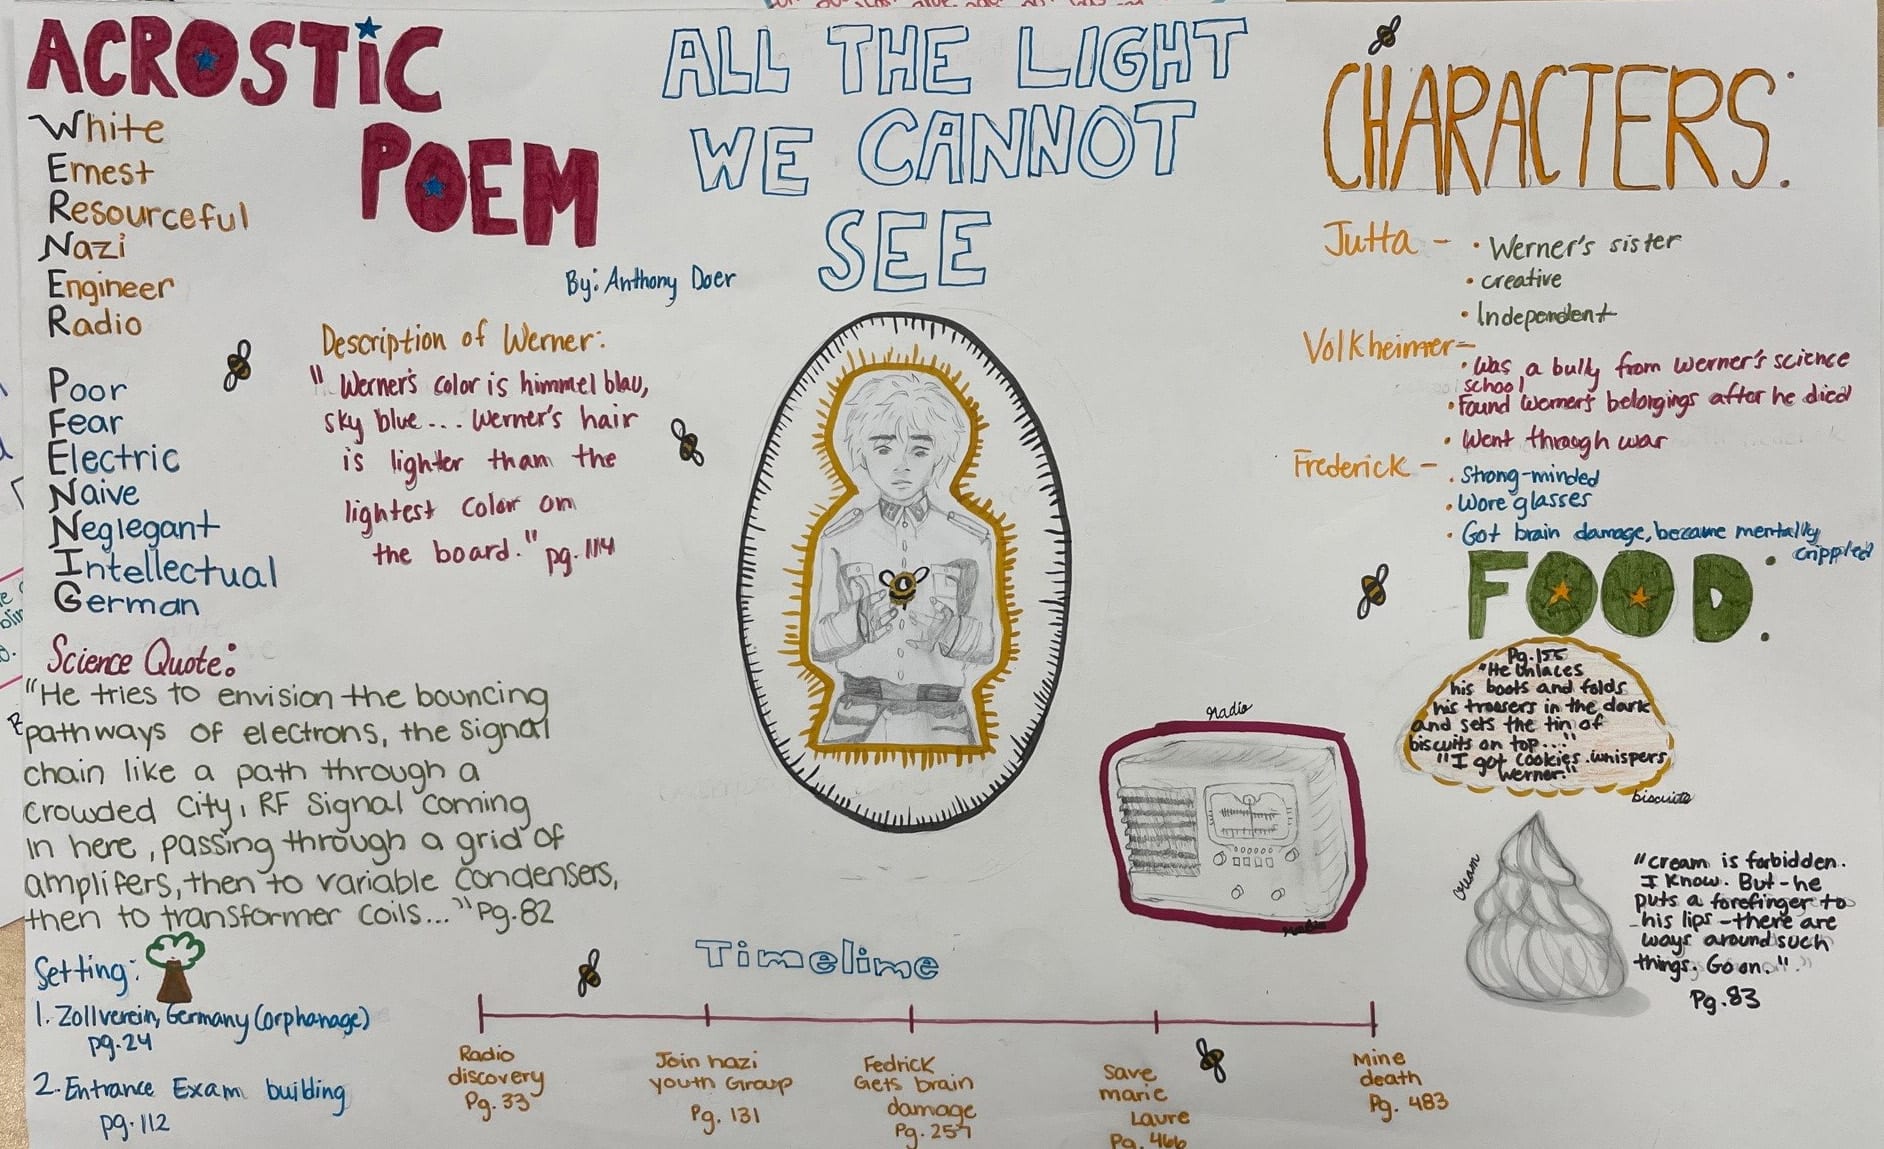 ACROSTIC
POEM
White
Ernest
Resourceful
Nazi
Engineer
Radio
Poor
Fear
Electric
Naive
Neglegant
Intellectual
German
ALL THE LIGHT
WE CANNOT
SEE
By: Anthony Doer
Description of Werner:
" Werner's color is himmel blau,
sky blue... Werner's hair
is lighter than the
lightest color on
the board." pg. 114
Science Quote:
"He tries to envision the bouncing
pathways of electrons, the signal
chain like a path through a
crowded city, RF Signal coming
in here, passing through a grid of
amplifers, then to variable condensers,
then to transformer coils..." Pg. 82
Setting:
1. Zollverein, Germany (orphanage)
pg. 24
2. Entrance Exam building
pg. 112
Timeline
Radio
discovery
Pg. 33
Join nazi
youth Group
Pg. 131
Fedrick
Gets brain
damage
Pg. 257
Save
marie
Laure
Pg. 466
Mine
death
Pg. 483
radio
radio
CHARACTERS:
Jutta - • Werner's sister
• creative
• Independent
Volkheimer - • Was a bully from Werner's science
school
• Found Werner's belongings after he died
• Went through war
Frederick - • Strong-minded
• Wore glasses
• Got brain damage, became mentally
crippled
FOOD:
Pg. 155
"He unlaces
his boots and folds
his trousers in the dark
and sets the tin of
biscuits on top..."
"I got cookies. whispers
Werner."
biscuits
cream
"cream is forbidden.
I know. But - he
puts a forefinger to
his lips - there are
ways around such
things. Go on."
Pg. 83